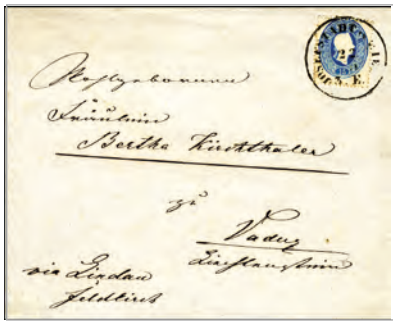 Wohlgeboren
Fräulein
Bertha Kirchthaler
zu
Vaduz
Liechtenstein
via Lindau
Feldkirch